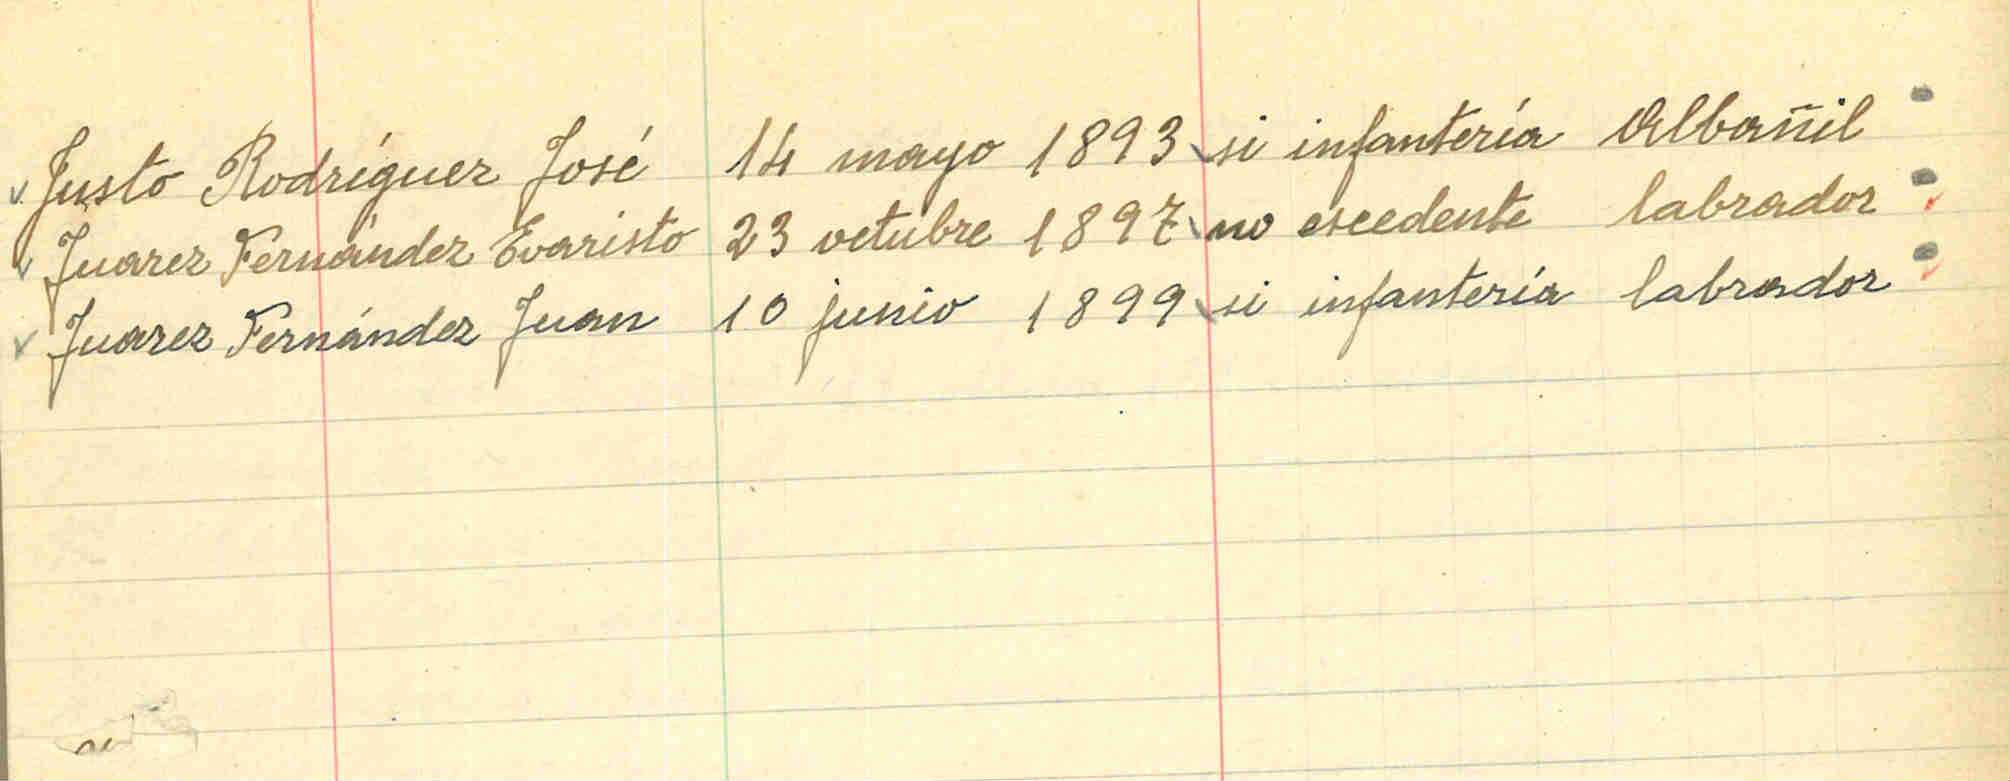 Justo Rodríguez José 14 mayo 1893 si infantería Albañil
Juarez Fernández Evaristo 23 octubre 1897 no escedente labrador
Juarez Fernández Juan 10 junio 1899 si infantería labrador